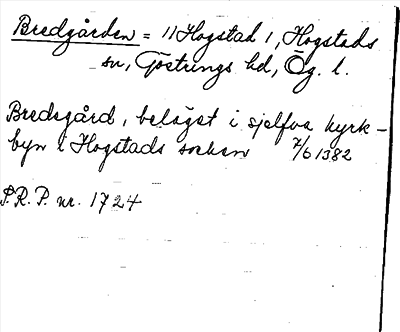 Bredgården = 11 Hogstad 1, Hogstads
sn, Göstrings hd, Ög. l.
Bredsgård, beläget i sjelfva kyrk-
byn i Hogstads socken 7/6 1382
S.R.P. nr. 1724